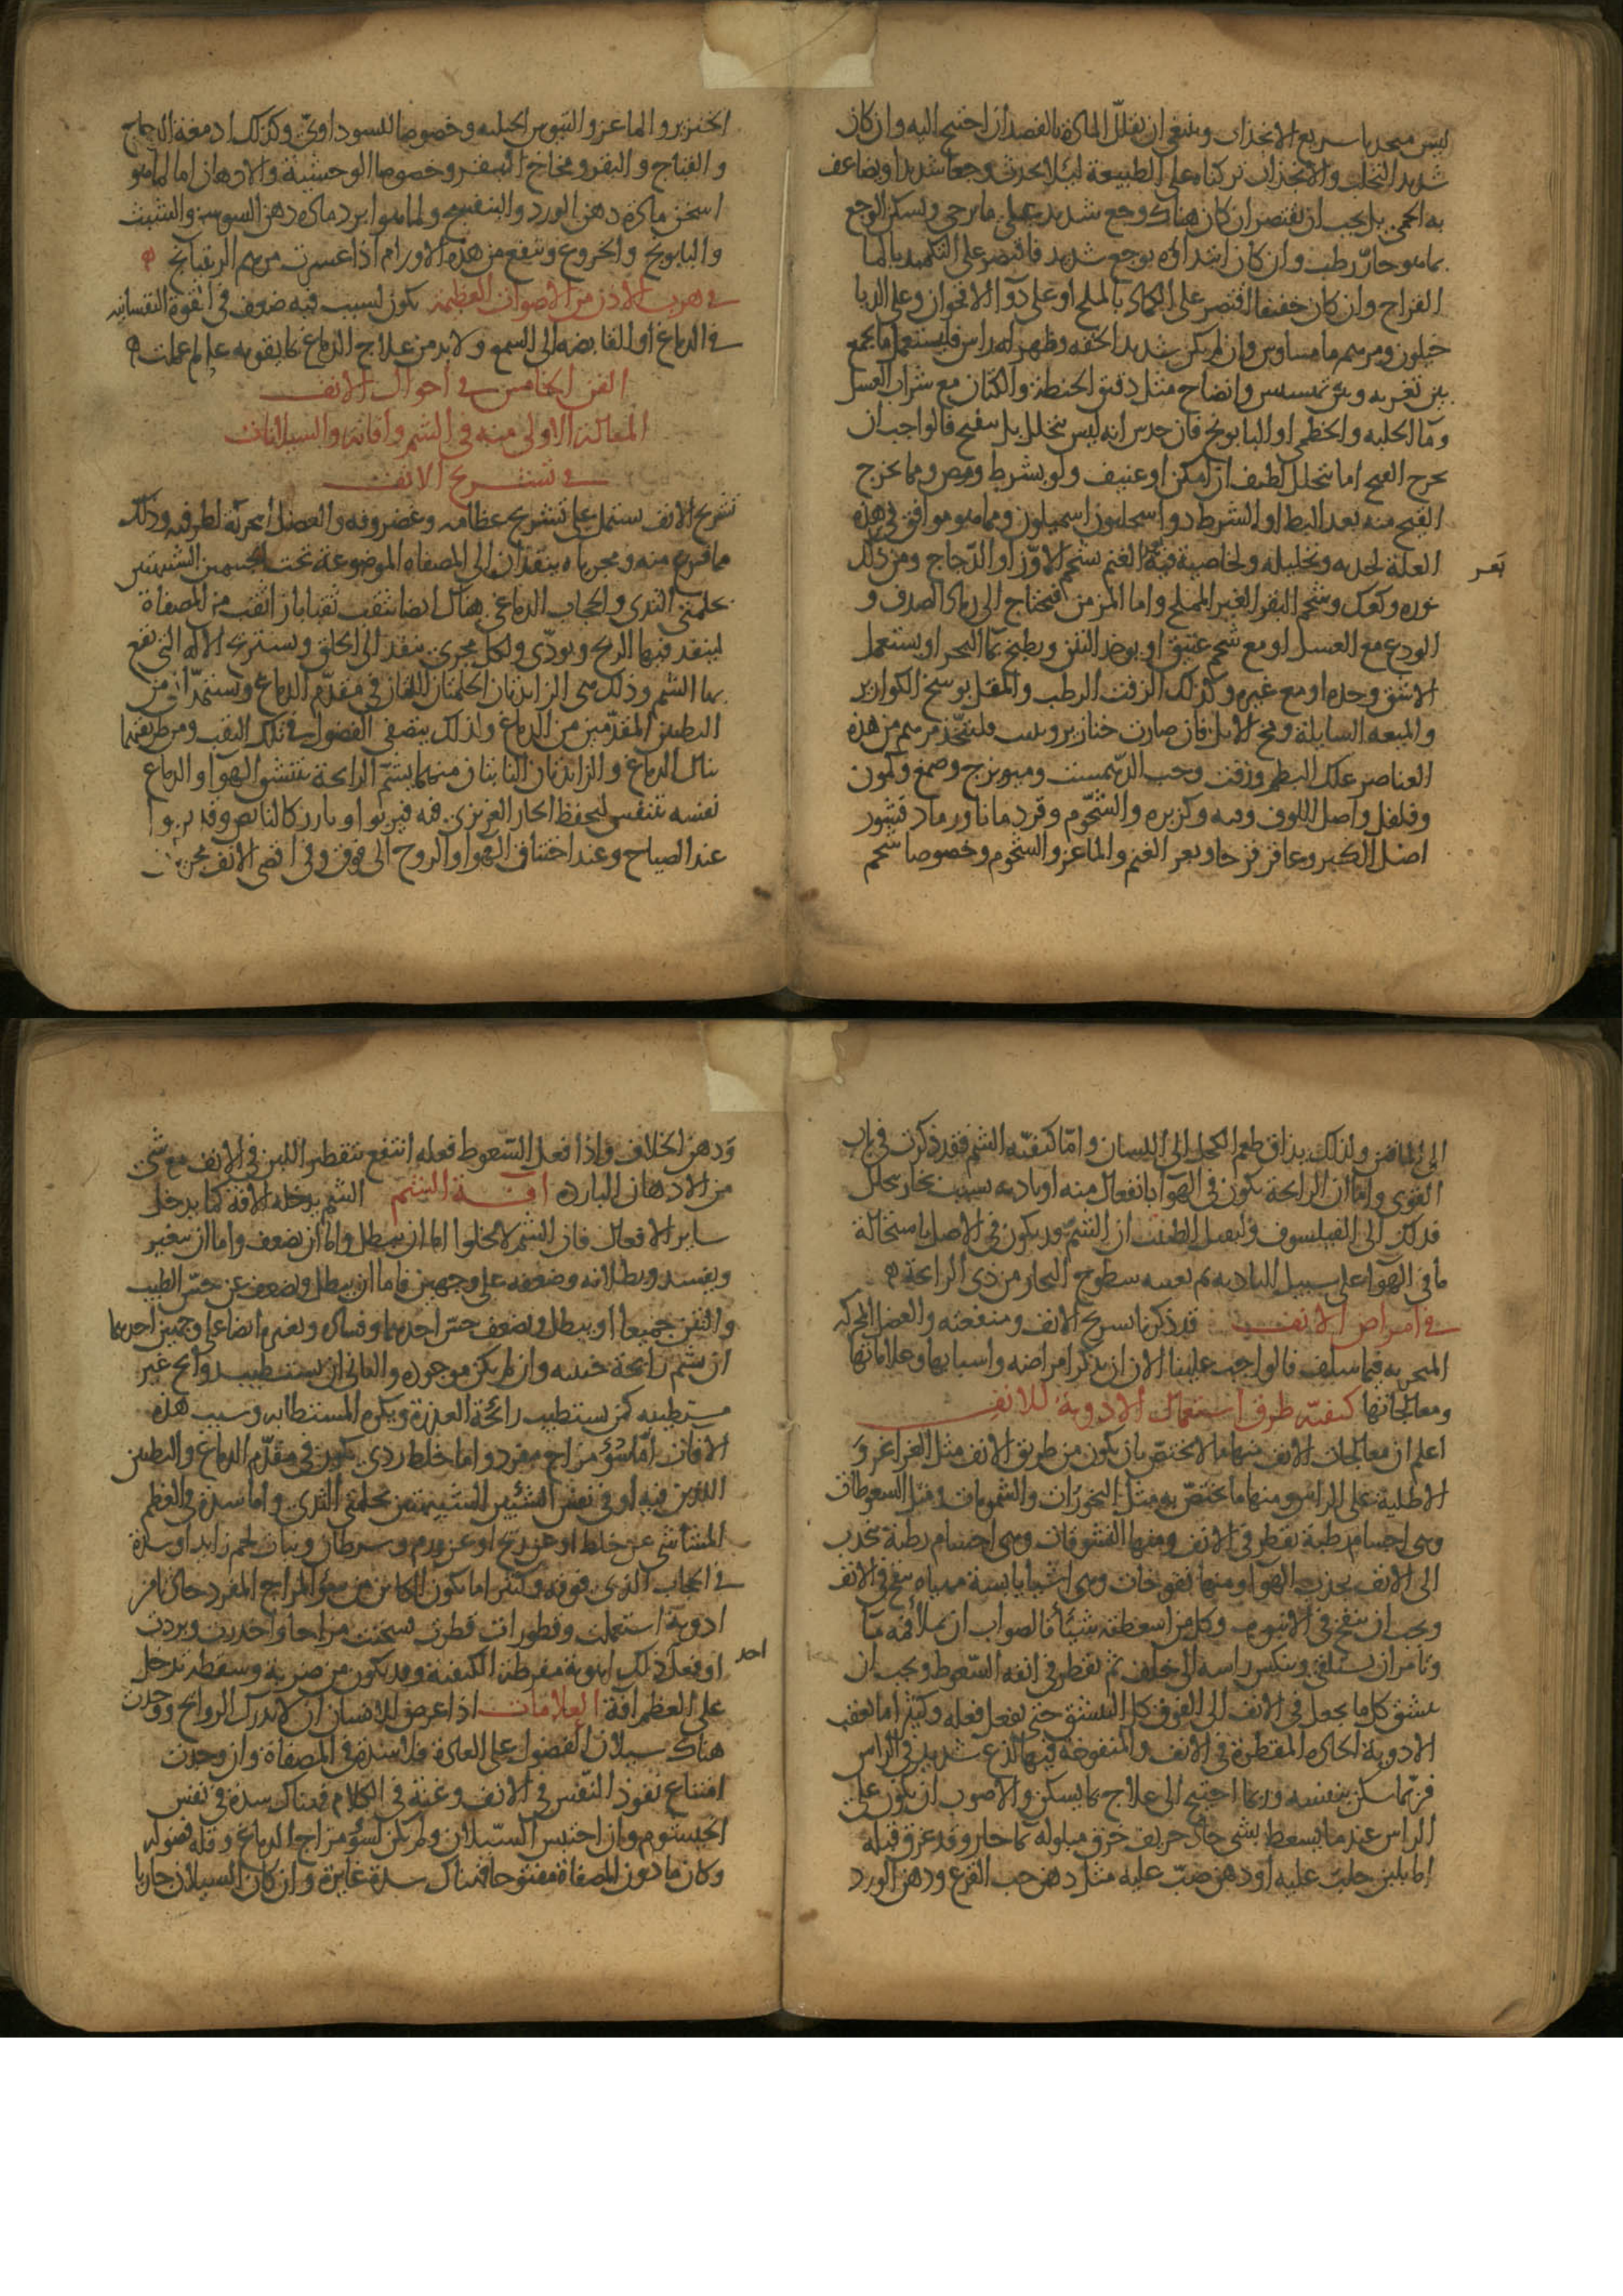 ليس منجذبا سريع الانجذاب وينبغي ان يقلل المادة بالفصد ان احتيج اليه وان كان
شديد التحلب والانجذاب تركناه على الطبيعة ليلا يحدث وجعا شديدا ويضاعف
به الحمى بل يجب ان يقتصر ان كان هناك وجع شديد على ما يرخي ويسكن الوجع
بما هو حار رطب وان كان ابتداؤه بوجع شديد فاقتصر على التكميد بالما
القراح وان كان خفيفا اقتصر على الكماد بالملح او على دوا الاقحوان وعلى الديا
خيلون ومرهم ماميساوس وان لم يكن شديد الخفه وظهر له راس فليستعمل ما يجمع
بين تغريه وبين تمسيس وانضاج مثل دقيق الحنطة والكتان مع شراب العسل
وما الحلبه والخطمي او البابونج فان حدس انه ليس يتحلل بل يتقيح فالواجب ان
يخرج القيح اما بتحلل لطيف ان امكن او عنيف ولو بشرط ومص ومما يخرج
القيح منه بعد البط او الشرط دوا اسحليون اسميلون ومما هو موافق في هذه
العلة لجذبه وتحليله ولخاصية فيه الغنم بشحم الاوز او الدجاج ومن ذلك
تعر
نوره وكعك وشحم البقر الغير المملح واما المزمن فيحتاج الى رماد الصدف و
الودع مع العسل او مع شحم عتيق او يوخذ التين ويطبخ بما البحر او يستعمل
الاشق وحده او مع غيره وكذلك الزفت الرطب والمقل بوسخ الكواير
والميعه السايلة ومخ الايل فان صارت خنازير وصلبت فليتخذ مرهم من هذه
العناصر علك البطم وزفت وحب الدهمست وميويزج وصمغ وكمون
وفلفل واصل اللوف وقنه وكزبره والشحوم وقردمانا ورماد قشور
اصل الكبر وعاقرقرحا وبعر الغنم والماعز والشحوم وخصوصا شحم
الخنزير والماعز والتيوس الجبليه وخصوصا للسوداوي وكذلك ادمغة الدجاج
والقباج والبقر ومخاخ البقر وخصوصا الوحشية والادهان اما لما هو
اسخن مادة دهن الورد والبنفسج ولما هو ابرد مادة دهن السوسن والشبث
والبابونج والخروع وينفع من هذه الاورام اذا عسرت مرهم الريتيانج ه
في هرب الاذن من الاصوات العظيمة يكون لسبب فيه ضعف في القوة النفسانيه
في الدماغ او الفايضه الى السمع ولا بد من علاج الدماغ بما يقويه على ما علمت ه
الفن الخامس في احوال الانف
المقالة الاولى منه في الشم وافاته والسيلانات
في تشريح الانف
تشريح الانف يشتمل على تشريح عظامه وغضروفه والعضل المحركة لطرفيه وذلك
مما فرغ منه ومجرياه ينفذان الى المصفاه الموضوعة تحت الجسمين الشبيهين
بحلمتي الثدي والحجاب الدماغي هناك ايضا يثقب ثقبا بازا ثقب من المصفاة
لينفذ فيها الريح ويودي ولكل مجرى ينفذ الى الحلق وتشريح الالة التي تقع
بها الشم وذلك هي الزايدتان الحلمتان اللتان في مقدم الدماغ ويستمدان من
البطنين المقدمين من الدماغ ولذلك يتصفى الفضول في تلك الثقب ومن طريقها
ينال الدماغ والزايدتان الناتيتان منهما يشم الرايحة بتنشق الهوا والدماغ
نفسه يتنفس ليحفظ الحار الغريزي فيه فيربوا ويارز كالنابض وقد يربوا
عند الصياح وعند اختناق الهوا والروح الى فوق وفي اقصى الانف مجريان
الى الماقين ولذلك يذاق طعم الكحل الى اللسان واما كيفية الشم فقد ذكرت في باب
القوى واما ان الرايحة يكون في الهوا بانفعال منه او تاديه بسبب بخار يتحلل
فذلك الى الفيلسوف وليقبل الطبيب ان الشم قد يكون في الاصل باستحالة
ما في الهوا على سبيل التاديه ثم يعينه سطوع البخار من ذي الرايحة ه
في امراض الانف قد ذكرنا تشريح الانف ومنفعته والعضل المحركه
المنخريه فيما سلف فالواجب علينا الان ان نذكر امراضه واسبابها وعلاماتها
ومعالجاتها كيفية طرق استعمال الادوية للانف
اعلم ان معالجات الانف منها ما لا يختص بان يكون من طريق الانف مثل الغراغر و
الاطلية على الراس ومنها ما يختص به مثل البخورات والشمومات ومثل السعوطات
وهي اجسام رطبة يقطر في الانف ومنها النشوقات وهي اجسام رطبة تجذب
الى الانف بجذب الهوا ومنها نفوخات وهي اشيا يابسة مهياه ينفخ في الانف
ويجب ان ينفخ في الانبوب وكل من اسعطته شيئا فالصواب ان يملا فمه ما
وتامر ان يستلقي وينكس راسه الى خلف ثم يقطر في انفه السعوط ويجب ان
ينشق كل ما يجعل في الانف الى الفوق كل التنشق حتى يفعل فعله وكثيرا ما يعقب
الادوية الحاده المقطرة في الانف والمنفوخه فيها لذع شديد في الراس
فربما سكن بنفسه وربما احتيج الى علاج بما يسكن والاصوب ان يكون على
الراس عند ما يسعط بشي حاد حريف خرق مبلوله بما حار وقد غرق قبله
اما بلبن حلب عليه او دهن صب عليه مثل دهن حب القرع ودهن الورد
ودهن الخلاف واذا فعل السعوط فعله انتفع بتقطير اللبن في الانف مع شي
من الادهان البارده افة الشم الشم يدخله الافة كما يدخل
ساير الافعال فان الشم لا يخلوا اما ان يبطل واما ان يضعف واما ان يتغير
ويفسد وبطلانه وضعفه على وجهين فاما ان يبطل ويضعف عن حس الطيب
والنتن جميعا او يبطل ويضعف حس احدهما وفساده وتغيره ايضا على وجهين احدهما
ان يشم رايحة خبيثه وان لم يكن موجوده والثاني ان يستطيب روايح غير
مستطيبه كمن يستطيب رائحة العذرة ويكره المستطابه وسبب هذه
الافات اما سوء مزاج مفرد واما خلط ردي يكون في مقدم الدماغ والبطنين
اللذين فيه او في نفس الشيئين الشبيهتين بحلمتي الثدي واما سدة في العظم
المشاشي عن خلط او عن ريح او عن ورم وسرطان ونبات لحم زايد او سدة
في الحجاب الذي فوقه وكثيرا ما يكون الكاين من سوء المزاج المفرد حادثا من
ادوية استعملت وقطورات قطرت فسخنت مزاجا واخدرت وبردت
او فعل ذلك اهوية مفرطة الكيفية وقد يكون من ضربة وسقطة تدخل
احد
على العظم افة العلامات اذا عرض للانسان ان لا يدرك الروايح ووجدت
هناك سيلان الفضول على العادة فلا سدة في المصفاة وان وجدت
امتناع نفوذ النفس في الانف وغنة في الكلام فهناك سدة في نفس
الخيشوم وان احتبس السيلان ولم يكن لسوء مزاج الدماغ وقلة فضوله
وكان ما دون المصفاة مفتوحا فهناك سدة غايرة وان كان السيلان جاريا